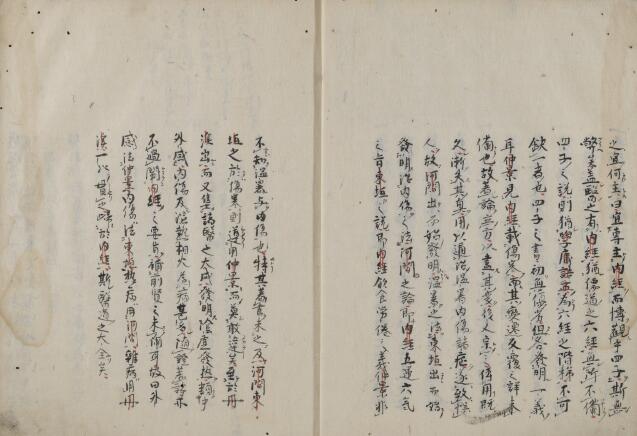 之宜何主曰宜專主內經而博觀乎四子斯無
弊矣蓋醫之有內經猶儒道之六經無所不備
四子之說則猶學庸語孟為六經之階梯不可
缺一者也四子之書初無優劣但各發明一義
耳仲景見內經載傷寒而其變遷反覆之詳未
備也故著論立方以盡其變後人宗之傳用既
久漸失其真用以通治溫暑內傷諸症遂致誤
人故河間出而始發明溫暑之治東垣出而始
發明治內傷之法河間之論即內經五運六氣
之旨東垣之說即內經飲食勞倦之義仲景非
不知溫暑與內傷也特其著書未之及河間東
垣之於傷寒則遵用仲景而莫敢違矣至於丹
溪出而又集諸醫之大成發明陰虛發熱類乎
外感內傷及濕熱相火為病甚多隨證著論亦
不過闡內經之要旨補前賢之未備耳故曰外
感法仲景內傷法東垣熱病用河間雜病用丹
溪一以貫之歸於內經斯醫道之大全矣